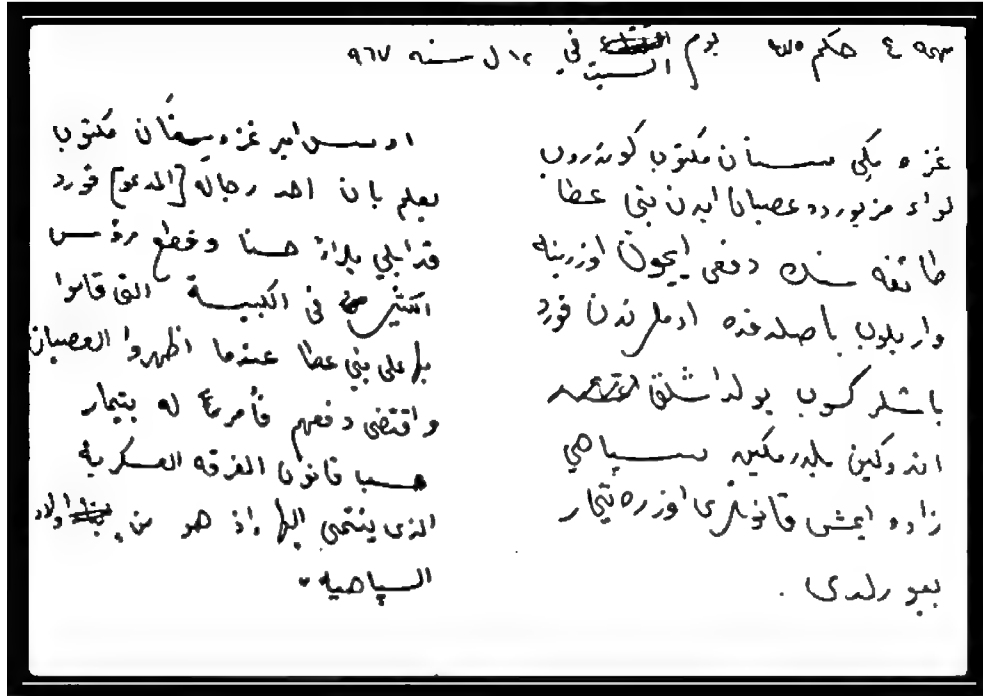 ٤ حكم يوم السبت في ١٢ ل سنه ٩٦٧
غزه بكي سنان مكتوب كوندروب
لواء مزبورده عصيان ايدن بني عطا
طائفه سنك دفعي ايچون اوزرينه
واريلوب باصلدقده ادملرندن فورد
باشلر كسوب يولداشلق
اندوكين بلدرمكين سپاهي
زاده ايمش قانونلرى اوزره تيمار
بيورلدى .
امير غزه سنان مكتوب
يعلم بان احد رجاله [المدعو] فورد
قد ابلي بلاءً حسنا وقطع رؤس
الكثير في الكبسة التي قاموا
بها على بني عطا عندما اظهروا العصيان
واقتضى دفعهم فأمر له بتيمار
حسب قانون الفرقه العسكرية
الذى ينتمي اليها إذ هو من اولاد
السپاهيه .